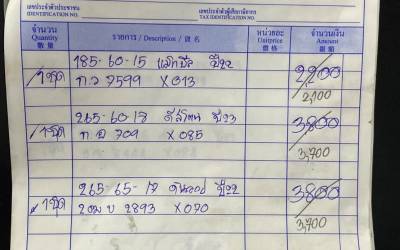 เลขประจำตัวประชาชน
IDENTIFICATION NO.
เลขประจำตัวผู้เสียภาษีอากร
TAX IDENTIFICATION NO.
จำนวน รายการ / Description / 貨 名 หน่วยละ จำนวนเงิน
Quantity Unitprice Amount
數 量 價 格 銀 額
185-60-15 ปี22 2,200
1 ชุด ก.จ 7599 X013 2,100
265-60-18 ปี23 3800
1 ชุด 709 X085 3,700
265-65-17 ปี22 3800
1 ชุด 2893 X070 3,700